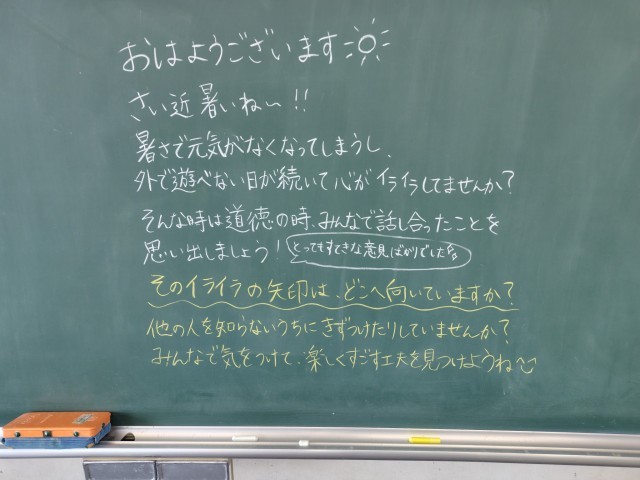 おはようございます
さい近暑いねー!!
暑さで元気がなくなってしまうし、
外で遊べない日が続いて心がイライラしてませんか?
そんな時は道徳の時、みんなで話し合ったことを
思い出しましょう! とってもすてきな意見ばかりでした
そのイライラの矢印は、どこへ向いていますか?
他の人を知らないうちにきずつけたりしていませんか?
みんなで気をつけて、楽しくすごす工夫を見つけようね